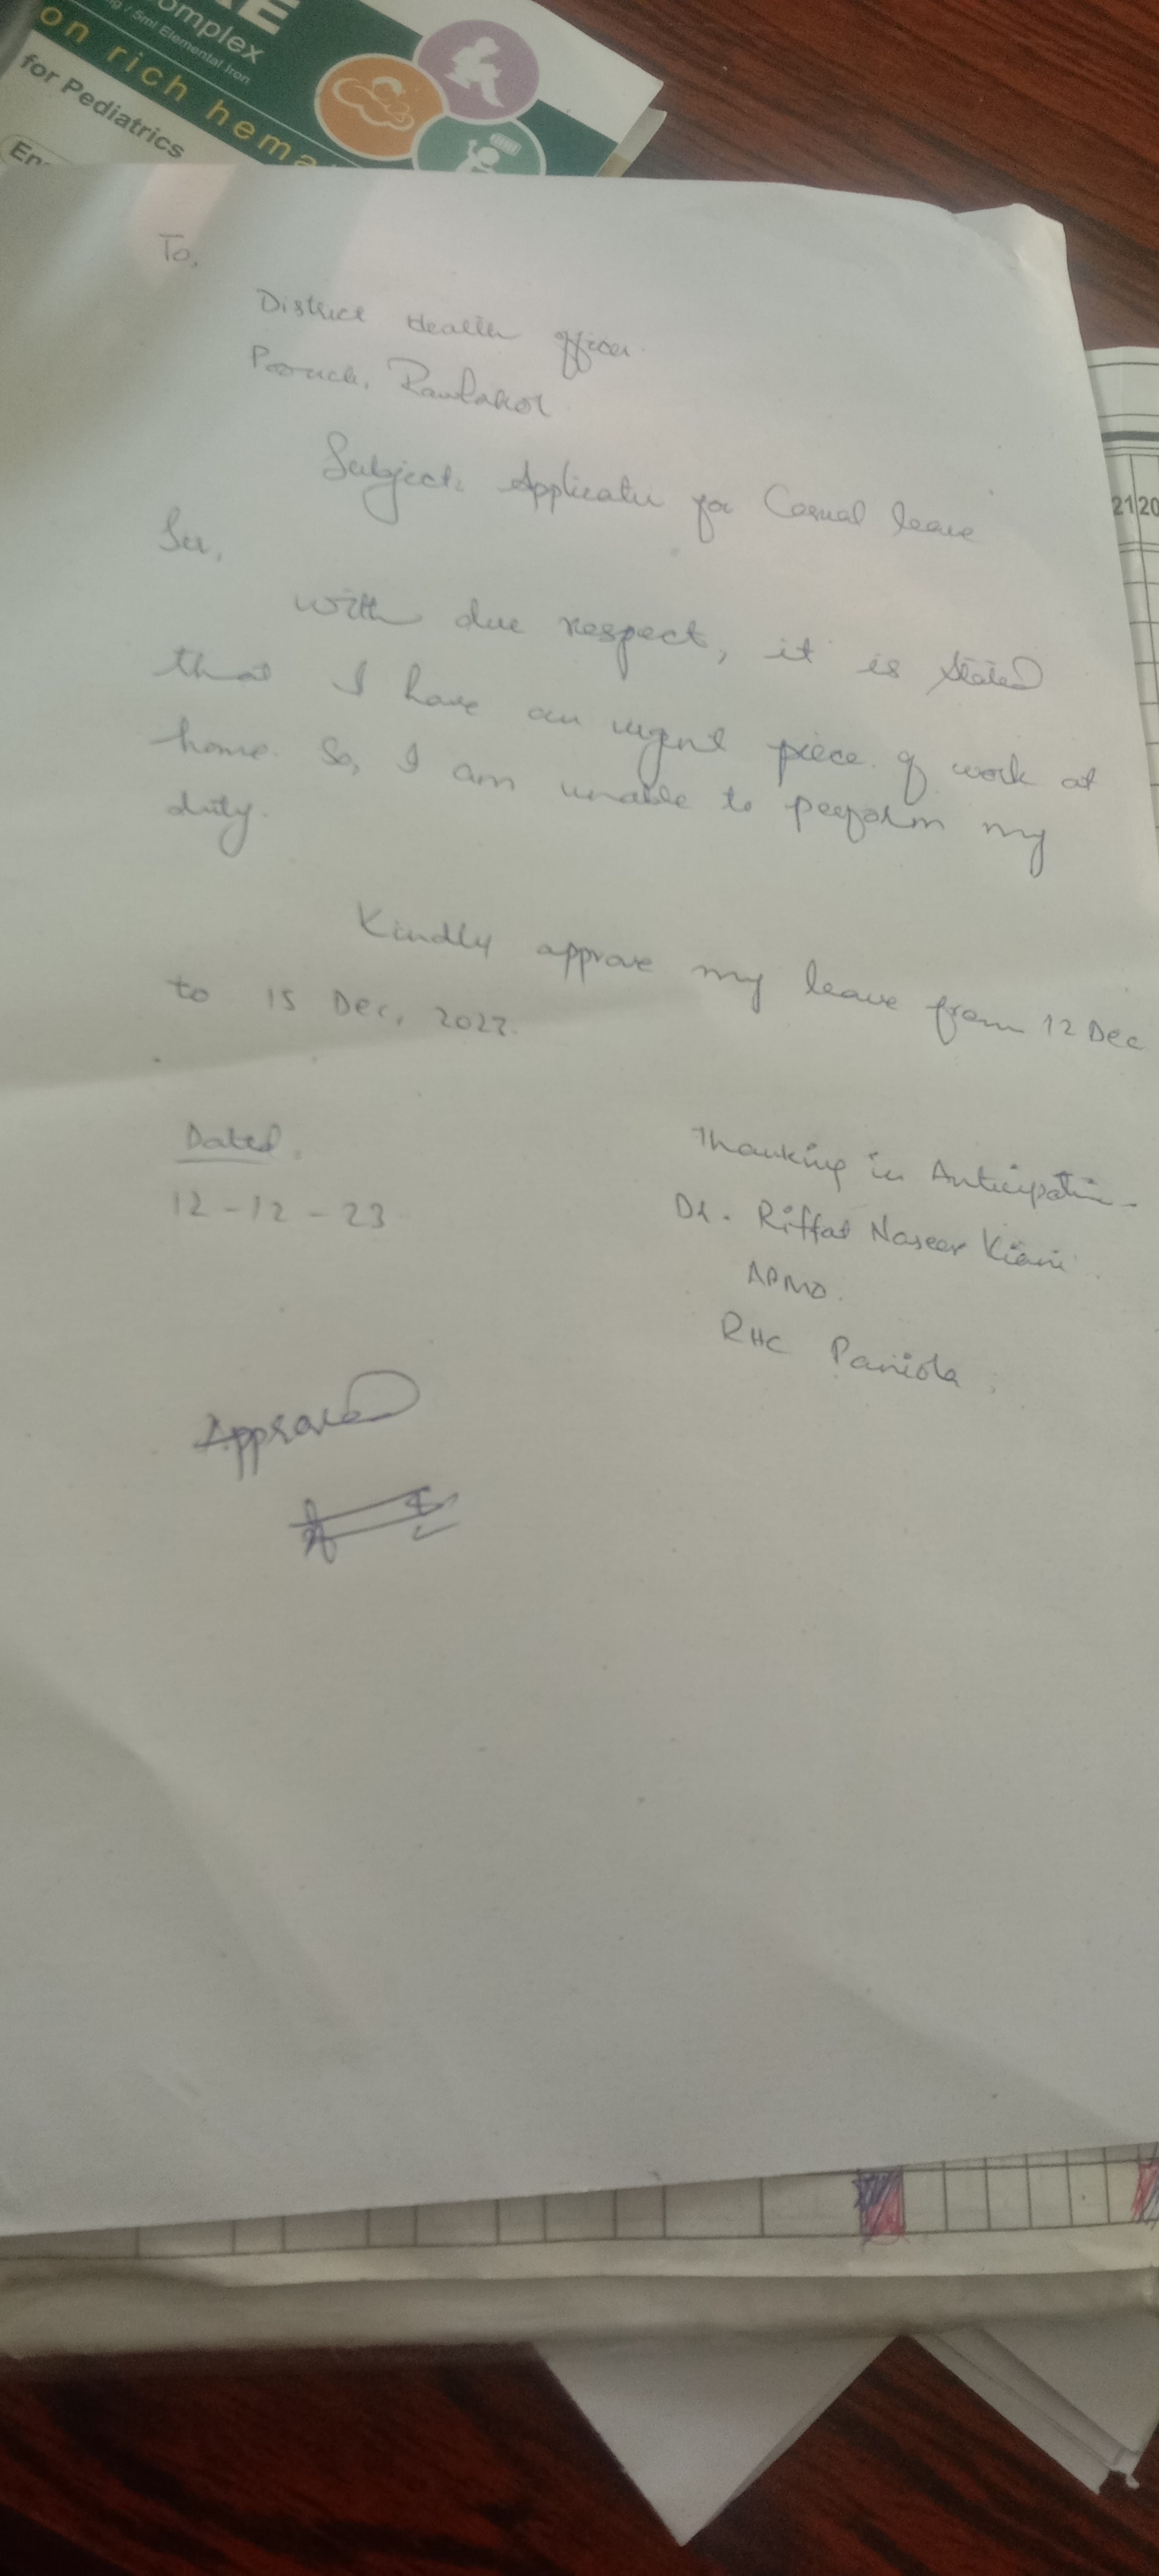 omplex
5ml Elemental Iron
on rich hema
for Pediatrics
To,
District Health officer.
Poonch, Rawlakot
Subject: Application for Casual leave
Sir,
with due respect, it is stated
that I have an urgent piece of work at
home. So, I am unable to perform my
duty.
Kindly approve my leave from 12 Dec
to 15 Dec, 2022.
Dated.
12-12-23
Thanking in Anticipation
Dr. Riffat Naseer Kiani
APMO.
RHC Paniola.
Approved
21 20